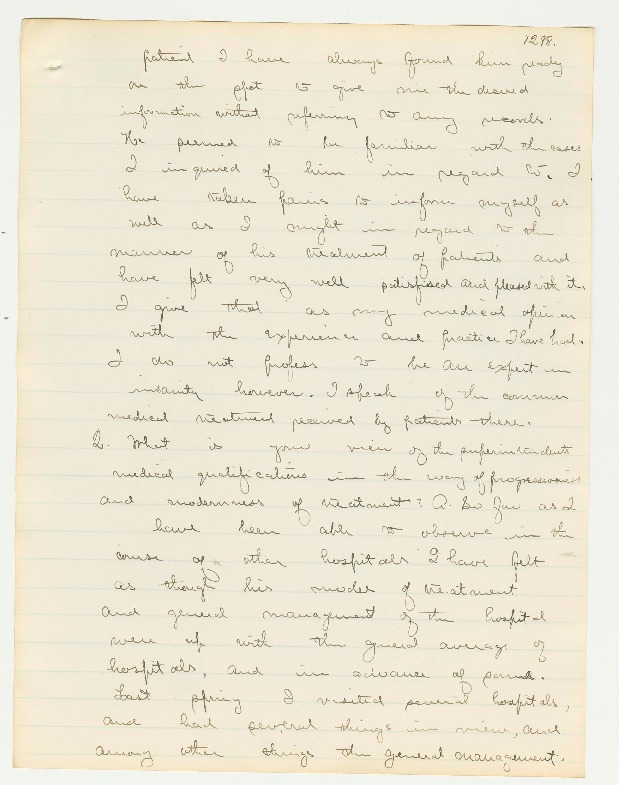 1298.
patient I have always found him ready
on the spot to give me the desired
information without referring to any records.
He seemed to be familiar with the cases
I inquired of him in regard to. I
have taken pains to inform myself as
well as I might in regard to the
manner of his treatment of patients and
have felt very well satisfied and pleased with it.
I give that as my medical opinion
with the experience and practice I have had.
I do not profess to be an expert in
insanity however. I speak of the common
medical treatment received by patients there.
Q. What is your view of the superintendents
medical qualifications in the way of progressiveness
and modernness of treatment? A. So far as I
have been able to observe in the
course of other hospitals I have felt
as though his modes of treatment
and general management of the hospital
were up with the general average of
hospitals, and in advance of some.
Last spring I visited several hospitals,
and had several things in view, and
among other things the general management.